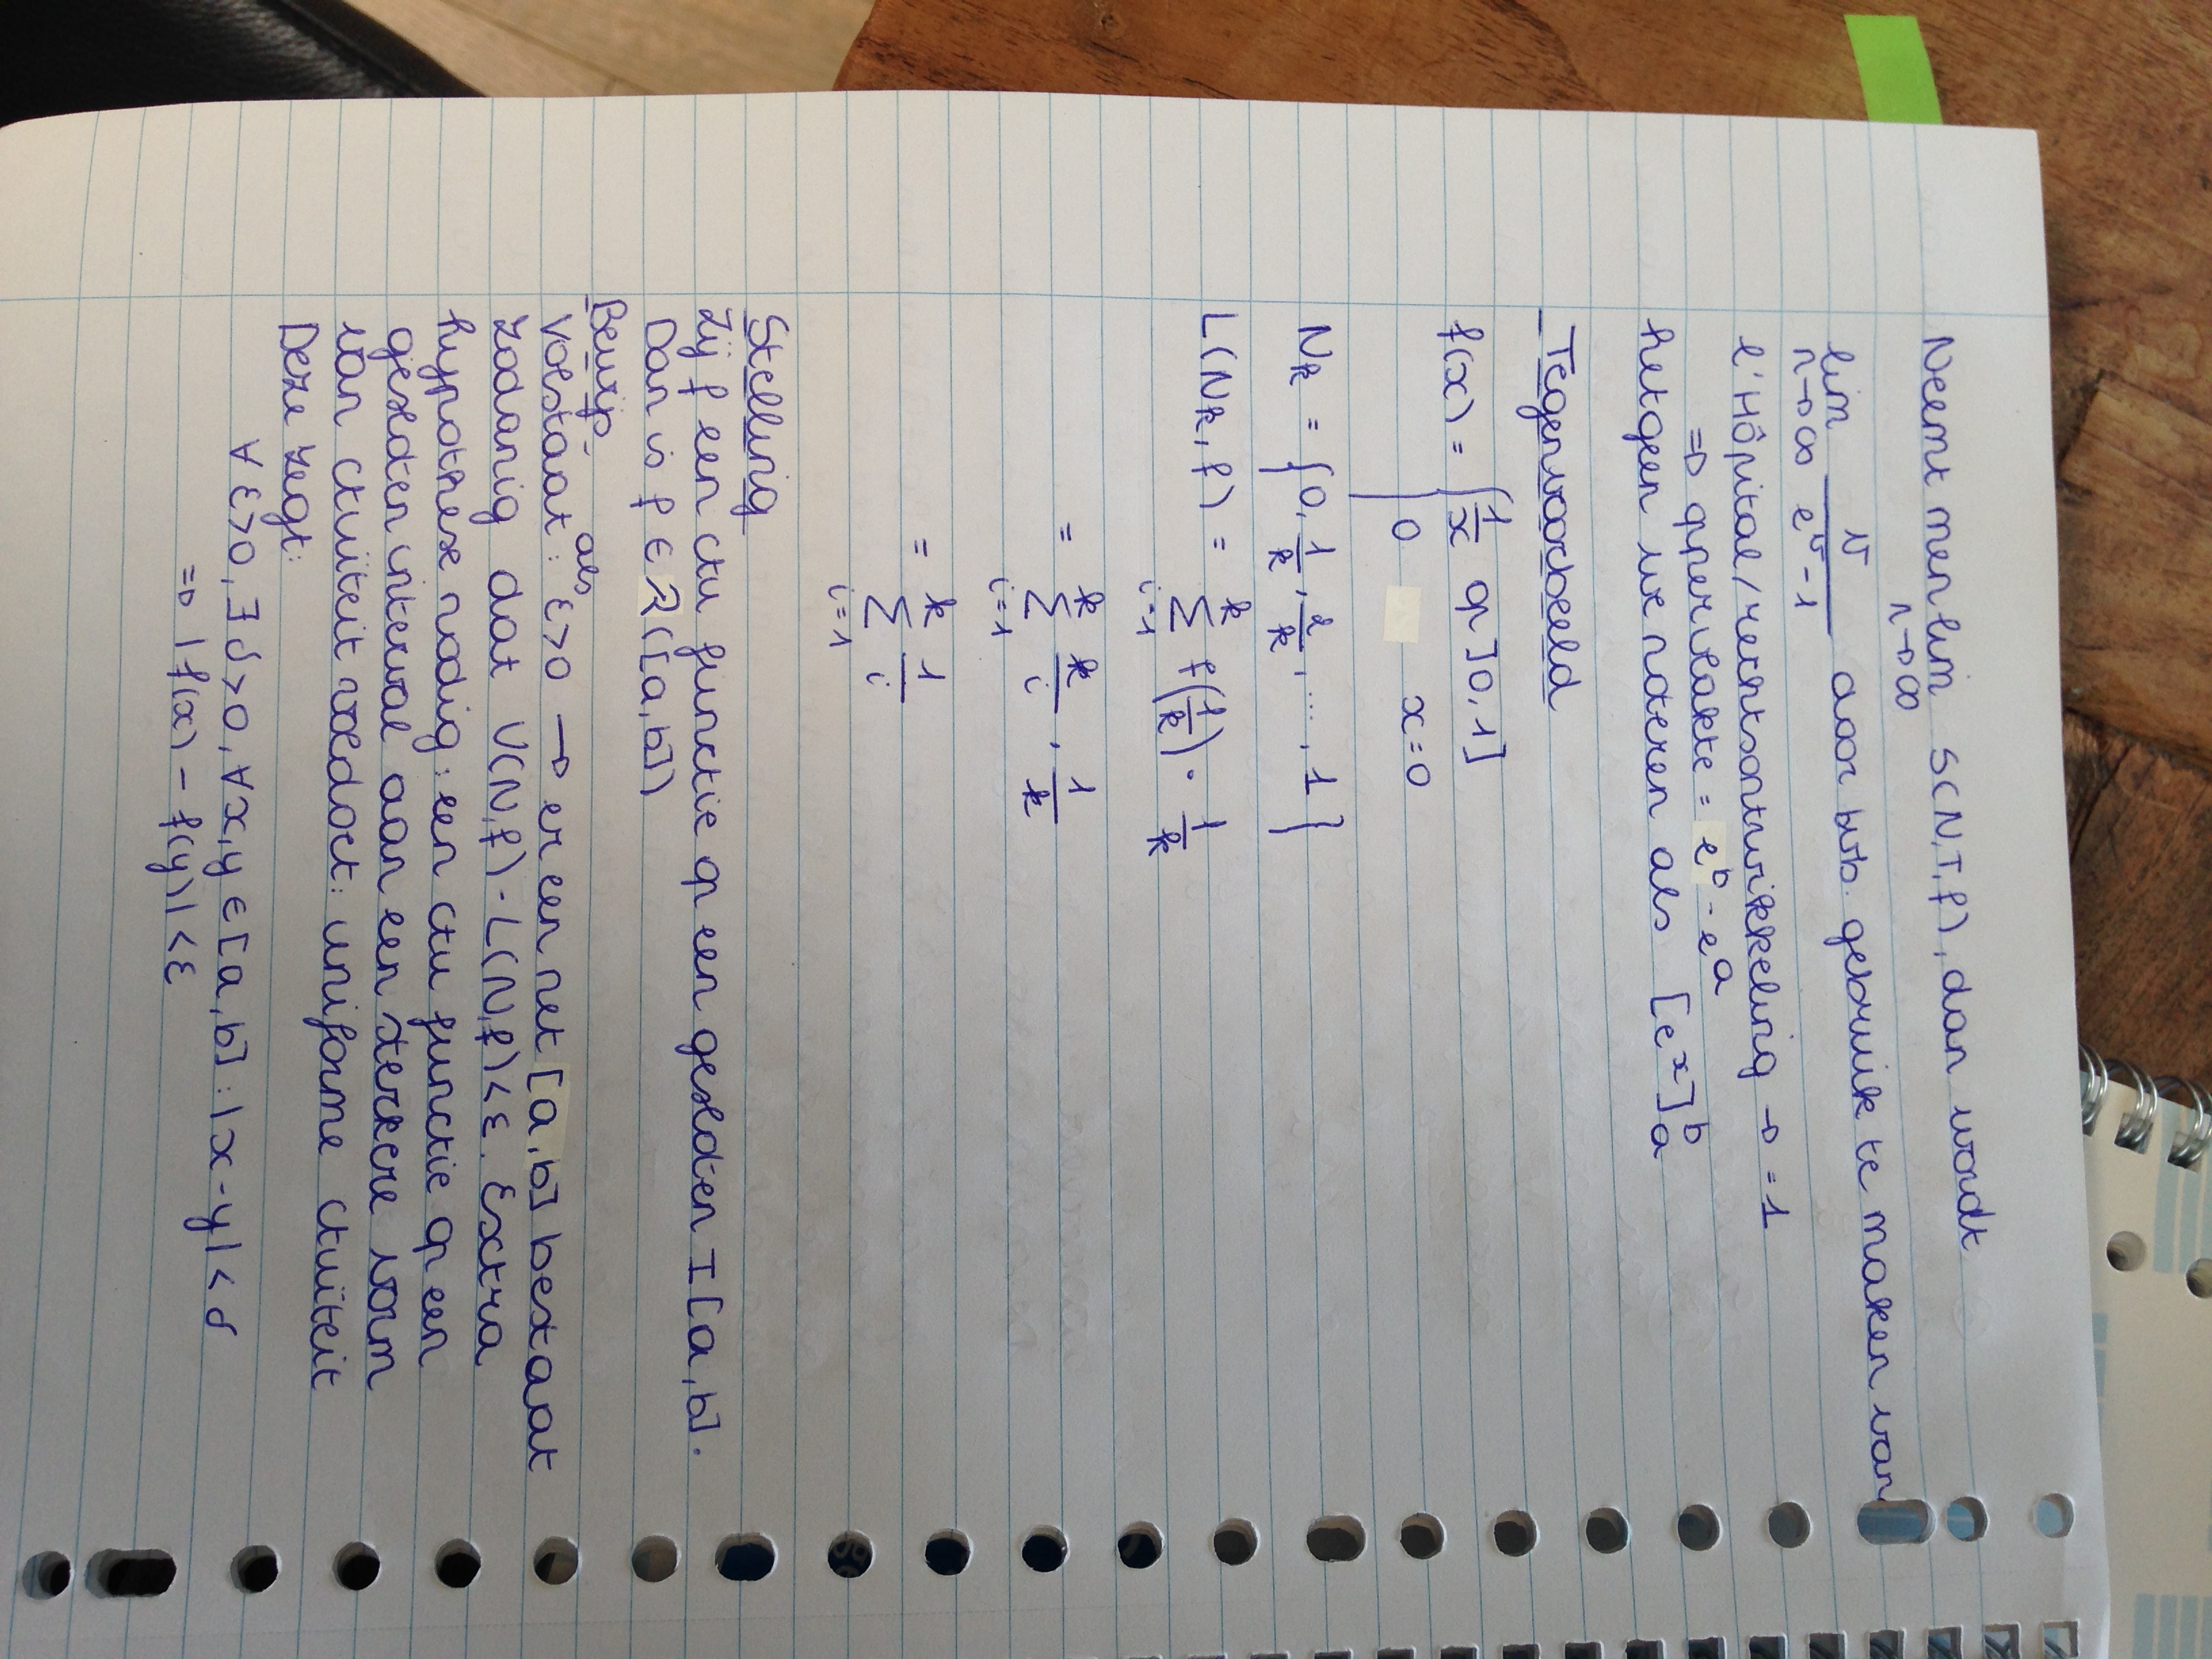 Neemt men lim S(N,T,f), dan wordt
n→∞
lim v/(e^v - 1) door bvb. gebruik te maken van
n→∞
l'Hôpital/rechtsontwikkeling → = 1
⇒ oppervlakte = e^b - e^a
hetgeen we noteren als [e^x]_a^b
Tegenvoorbeeld
f(x) = { 1/x op ]0,1]
0 x=0
N_k = {0, 1/k, 2/k, ..., 1}
L(N_k, f) = ∑_{i=1}^{k} f(1/k) · 1/k
= ∑_{i=1}^{k} k/i · 1/k
= ∑_{i=1}^{k} 1/i
Stelling
Zij f een ctu functie op een gesloten I [a,b].
Dan is f ∈ R([a,b])
Bewijs
Volstaat: als ε>0 → er een net [a,b] bestaat
zodanig dat U(N,f) - L(N,f) < ε. Extra
hypothese nodig: een ctu functie op een
gesloten interval aan een sterkere vorm
van ctuïteit voldoet: uniforme ctuïteit
Deze zegt:
∀ ε>0, ∃ δ>0, ∀x,y ∈ [a,b] : |x-y| < δ
⇒ |f(x) - f(y)| < ε